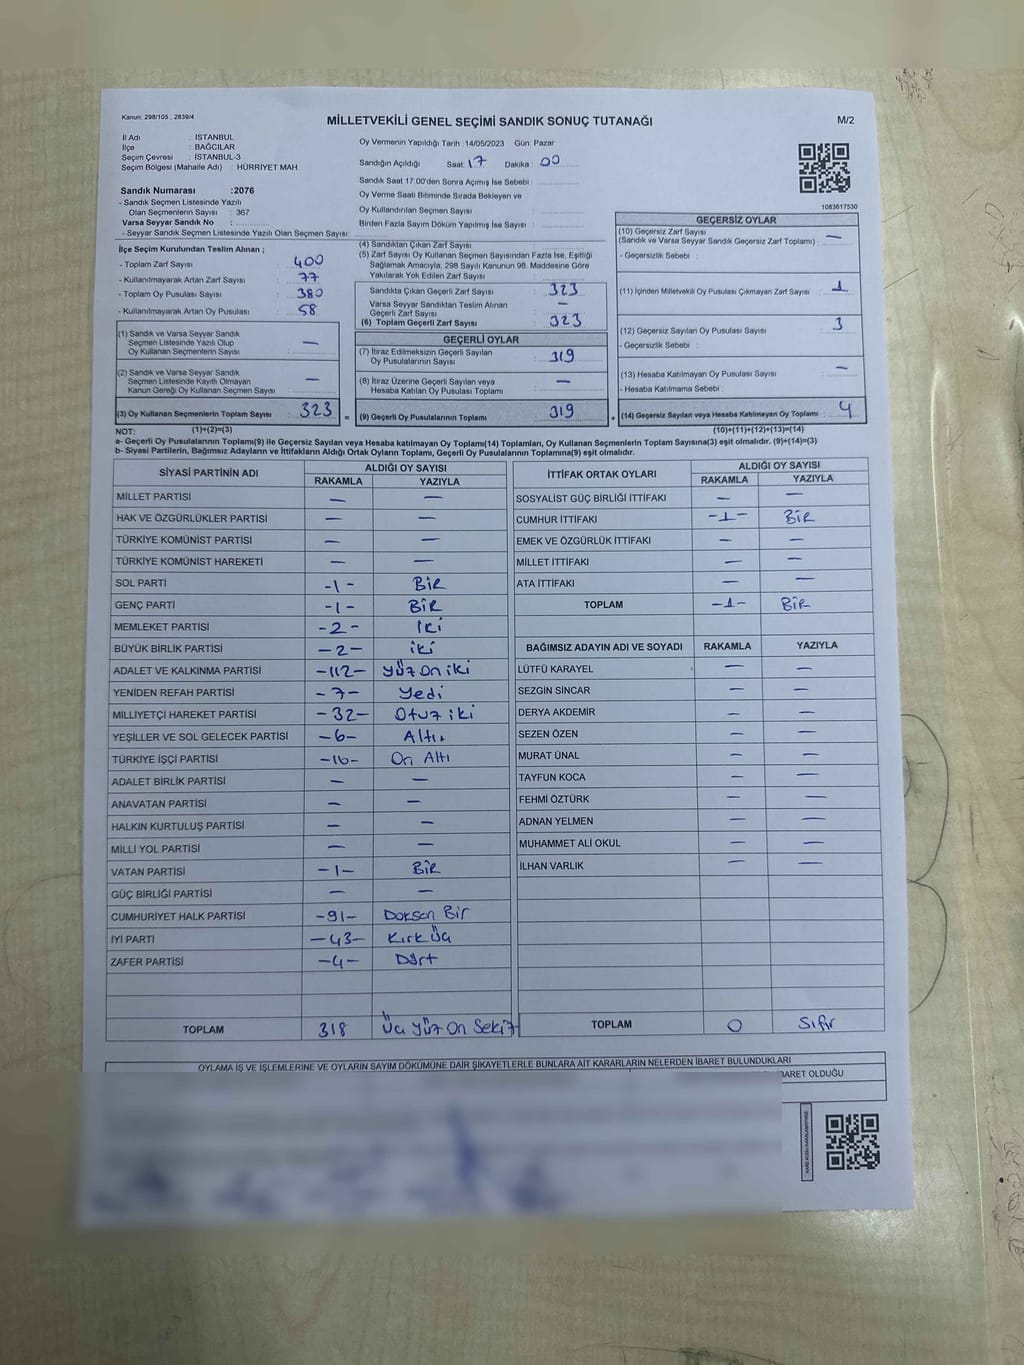 Kanun: 298/105 , 2839/4
MİLLETVEKİLİ GENEL SEÇİMİ SANDIK SONUÇ TUTANAĞI
M/2
İl Adı : İSTANBUL
İlçe : BAĞCILAR
Seçim Çevresi : İSTANBUL-3
Seçim Bölgesi (Mahalle Adı) : HÜRRİYET MAH.
Sandık Numarası :2076
- Sandık Seçmen Listesinde Yazılı
Olan Seçmenlerin Sayısı : 367
Varsa Seyyar Sandık No :
- Seyyar Sandık Seçmen Listesinde Yazılı Olan Seçmen Sayısı:
Oy Vermenin Yapıldığı Tarih :14/05/2023 Gün: Pazar
Sandığın Açıldığı Saat 17 Dakika : 00
Sandık Saat 17.00'den Sonra Açımış İse Sebebi :
Oy Verme Saati Bitiminde Sırada Bekleyen ve
Oy Kullandırılan Seçmen Sayısı :
Birden Fazla Sayım Döküm Yapılmış İse Sayısı :
1083617530
İlçe Seçim Kurulundan Teslim Alınan ;
- Toplam Zarf Sayısı : 400
- Kullanılmayarak Artan Zarf Sayısı : 77
- Toplam Oy Pusulası Sayısı : 380
- Kullanılmayarak Artan Oy Pusulası : 58
(1) Sandık ve Varsa Seyyar Sandık
Seçmen Listesinde Yazılı Olup
Oy Kullanan Seçmenlerin Sayısı : —
(2) Sandık ve Varsa Seyyar Sandık
Seçmen Listesinde Kayıtlı Olmayan
Kanun Gereği Oy Kullanan Seçmen Sayısı : —
(3) Oy Kullanan Seçmenlerin Toplam Sayısı : 323 =
(4) Sandıktan Çıkan Zarf Sayısı :
(5) Zarf Sayısı Oy Kullanan Seçmen Sayısından Fazla İse, Eşitliği
Sağlamak Amacıyla, 298 Sayılı Kanunun 98. Maddesine Göre
Yakılarak Yok Edilen Zarf Sayısı :
Sandıkta Çıkan Geçerli Zarf Sayısı : 323
Varsa Seyyar Sandıktan Teslim Alınan
Geçerli Zarf Sayısı : —
(6) Toplam Geçerli Zarf Sayısı : 323
GEÇERLİ OYLAR
(7) İtiraz Edilmeksizin Geçerli Sayılan
Oy Pusulalarının Sayısı : 319
(8) İtiraz Üzerine Geçerli Sayılan veya
Hesaba Katılan Oy Pusulası Toplamı : —
(9) Geçerli Oy Pusulalarının Toplamı : 319 +
GEÇERSİZ OYLAR
(10) Geçersiz Zarf Sayısı
(Sandık ve Varsa Seyyar Sandık Geçersiz Zarf Toplamı) : —
- Geçersizlik Sebebi :
(11) İçinden Milletvekili Oy Pusulası Çıkmayan Zarf Sayısı : 1
(12) Geçersiz Sayılan Oy Pusulası Sayısı : 3
- Geçersizlik Sebebi :
(13) Hesaba Katılmayan Oy Pusulası Sayısı : —
- Hesaba Katılmama Sebebi :
(14) Geçersiz Sayılan veya Hesaba Katılmayan Oy Toplamı : 4
NOT: (1)+(2)=(3) (10)+(11)+(12)+(13)=(14)
a- Geçerli Oy Pusulalarının Toplamı(9) ile Geçersiz Sayılan veya Hesaba katılmayan Oy Toplamı(14) Toplamları, Oy Kullanan Seçmenlerin Toplam Sayısına(3) eşit olmalıdır. (9)+(14)=(3)
b- Siyasi Partilerin, Bağımsız Adayların ve İttifakların Aldığı Ortak Oyların Toplamı, Geçerli Oy Pusulalarının Toplamına(9) eşit olmalıdır.
SİYASİ PARTİNİN ADI ALDIĞI OY SAYISI
RAKAMLA YAZIYLA
MİLLET PARTİSİ — —
HAK VE ÖZGÜRLÜKLER PARTİSİ — —
TÜRKİYE KOMÜNİST PARTİSİ — —
TÜRKİYE KOMÜNİST HAREKETİ — —
SOL PARTİ -1- BİR
GENÇ PARTİ -1- BİR
MEMLEKET PARTİSİ -2- İki
BÜYÜK BİRLİK PARTİSİ -2- iki
ADALET VE KALKINMA PARTİSİ -112- Yüz On iki
YENİDEN REFAH PARTİSİ -7- Yedi
MİLLİYETÇİ HAREKET PARTİSİ -32- Otuz iki
YEŞİLLER VE SOL GELECEK PARTİSİ -6- Altı
TÜRKİYE İŞÇİ PARTİSİ -16- On Altı
ADALET BİRLİK PARTİSİ — —
ANAVATAN PARTİSİ — —
HALKIN KURTULUŞ PARTİSİ — —
MİLLİ YOL PARTİSİ — —
VATAN PARTİSİ -1- BİR
GÜÇ BİRLİĞİ PARTİSİ — —
CUMHURİYET HALK PARTİSİ -91- Doksan Bir
İYİ PARTİ -43- Kırk Üç
ZAFER PARTİSİ -4- Dört
TOPLAM 318 Üç Yüz On Sekiz
İTTİFAK ORTAK OYLARI ALDIĞI OY SAYISI
RAKAMLA YAZIYLA
SOSYALİST GÜÇ BİRLİĞİ İTTİFAKI — —
CUMHUR İTTİFAKI -1- BİR
EMEK VE ÖZGÜRLÜK İTTİFAKI — —
MİLLET İTTİFAKI — —
ATA İTTİFAKI — —
TOPLAM -1- BİR
BAĞIMSIZ ADAYIN ADI VE SOYADI RAKAMLA YAZIYLA
LÜTFÜ KARAYEL — —
SEZGİN SİNCAR — —
DERYA AKDEMİR — —
SEZEN ÖZEN — —
MURAT ÜNAL — —
TAYFUN KOCA — —
FEHMİ ÖZTÜRK — —
ADNAN YELMEN — —
MUHAMMET ALİ OKUL — —
İLHAN VARLIK — —
TOPLAM 0 Sıfır
OYLAMA İŞ VE İŞLEMLERİNE VE OYLARIN SAYIM DÖKÜMÜNE DAİR ŞİKAYETLERLE BUNLARA AİT KARARLARIN NELERDEN İBARET BULUNDUKLARI
İBARET OLDUĞU